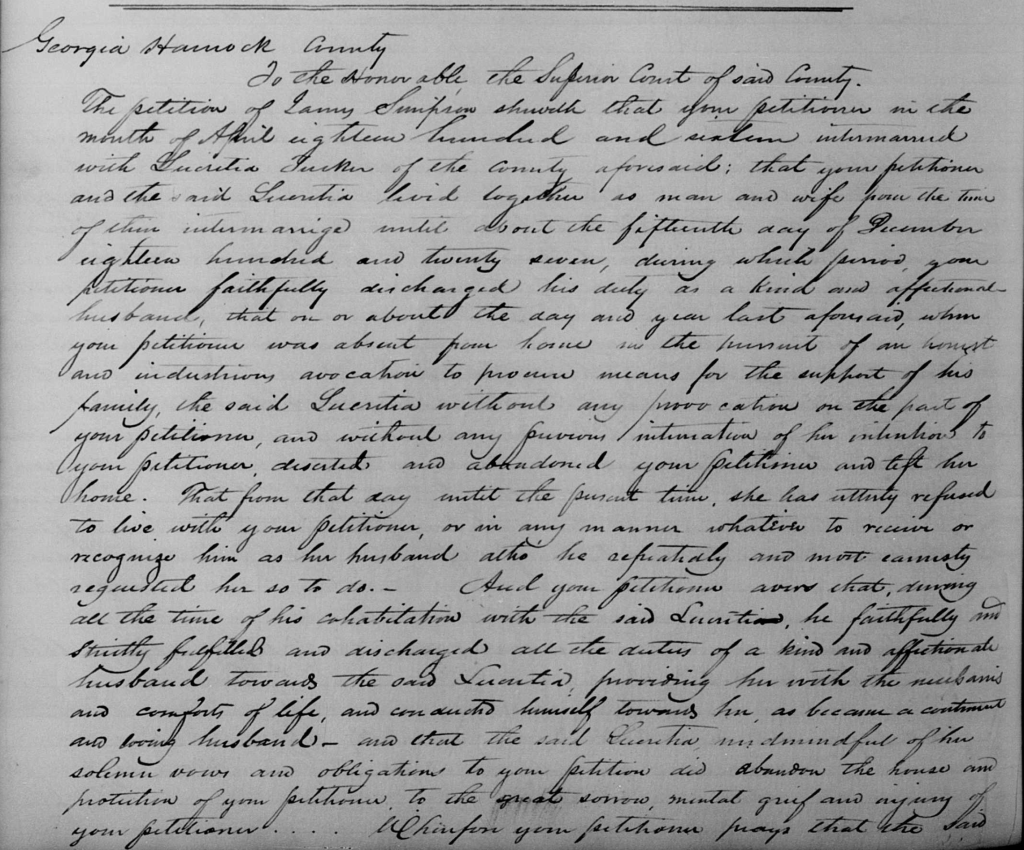 Georgia Hancock County
To the Honorable, the Superior Court of said County.
The petition of James Simpson sheweth that your petitioner in the
month of April eighteen hundred and sixteen intermarried
with Lucretia Tucker of the County aforesaid; that your petitioner
and the said Lucretia lived together as man and wife from the time
of their intermarrige until about the fifteenth day of December
eighteen hundred and twenty seven, during which period, your
petitioner faithfully discharged his duty as a kind and affectionate
husband, that on or about the day and year last aforesaid, when
your petitioner was absent from home in the pursuit of an honest
and industrious avocation to procure means for the support of his
family, the said Lucretia without any provocation on the part of
your petitioner, and without any previous intimation of her intention to
your petitioner, deserted and abandoned your petitioner and left her
home. That from that day until the present time, she has utterly refused
to live with your petitioner, or in any manner whatever to receive or
recognize him as her husband altho he repeatedly and most earnestly
requested her so to do. - And your petitioner avers that, during
all the time of his cohabitation with the said Lucretia, he faithfully and
strictly fulfilled and discharged all the duties of a kind and affectionate
husband towards the said Lucretia, providing her with the
and comforts of life, and conducted himself towards her, as became a
and loving husband - and that the said Lucretia, of her
solemn vows and obligations to your petition did abandon the house and
protection of your petitioner, to the great sorrow, mental grief and injury of
your petitioner . . . . Wherefore your petitioner prays that the said